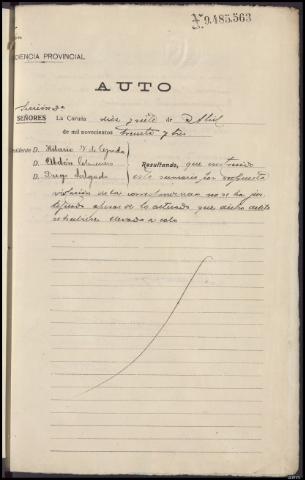 9.485.563
DENCIA PROVINCIAL
AUTO
Sección
SEÑORES La Coruña diez y siete de Abril
de mil novecientos treinta y tres
D. Hilario N. de Cepeda
D. Obdón Colmenero
D. Diego Salgado
Resultando, que instruido
este sumario por supuesta
violación de la correspondencia no se ha jus
tificado de lo actuado que dicho delito
se hubiese llevado a cabo